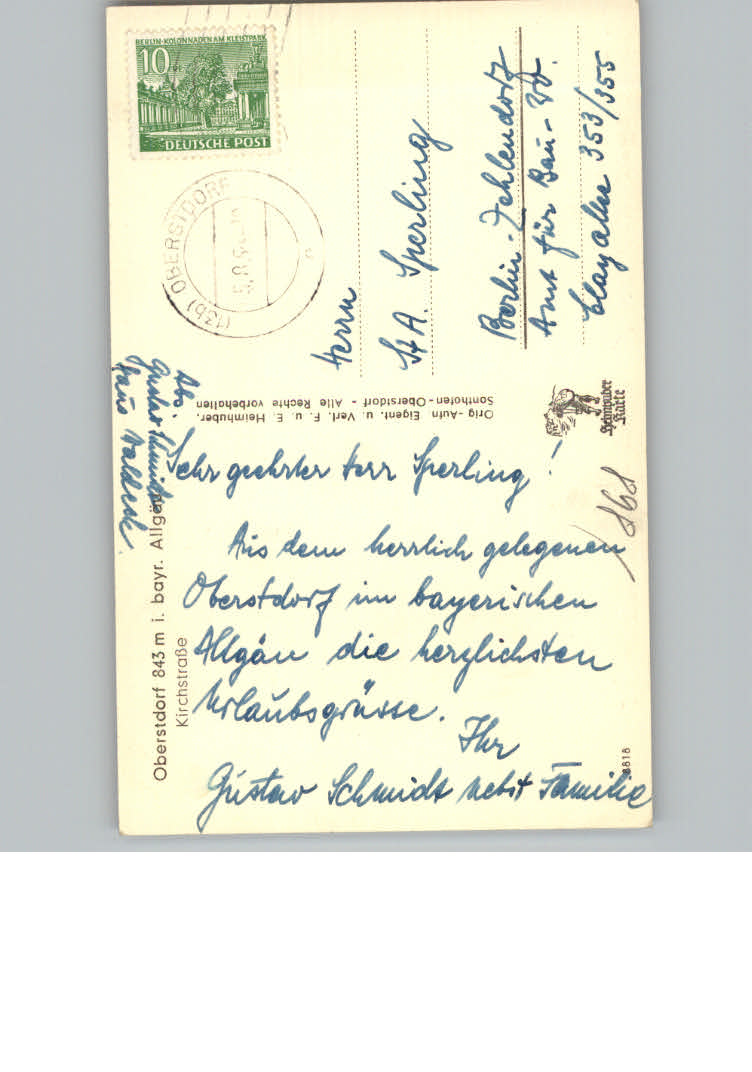 BERLIN-KOLONNADEN AM KLEISTPARK
10
DEUTSCHE POST
(13b) OBERSTDORF
Herrn
StA. Sperling
Berlin-Zehlendorf
Amt für Bau-
Clayallee 353/355
Abs.
Gustav Schmidt
Haus Waldeck
Orig.-Aufn. Eigent. u. Verl. F. u. E. Heimhuber,
Sonthofen-Oberstdorf - Alle Rechte vorbehalten
Karte
Oberstdorf 843 m i. bayr. Allgäu
Kirchstraße
Sehr geehrter Herr Sperling!
Aus dem herrlich gelegenen
Oberstdorf im bayerischen
Allgäu die herzlichsten
Urlaubsgrüsse.
Ihr
Gustav Schmidt nebst Familie